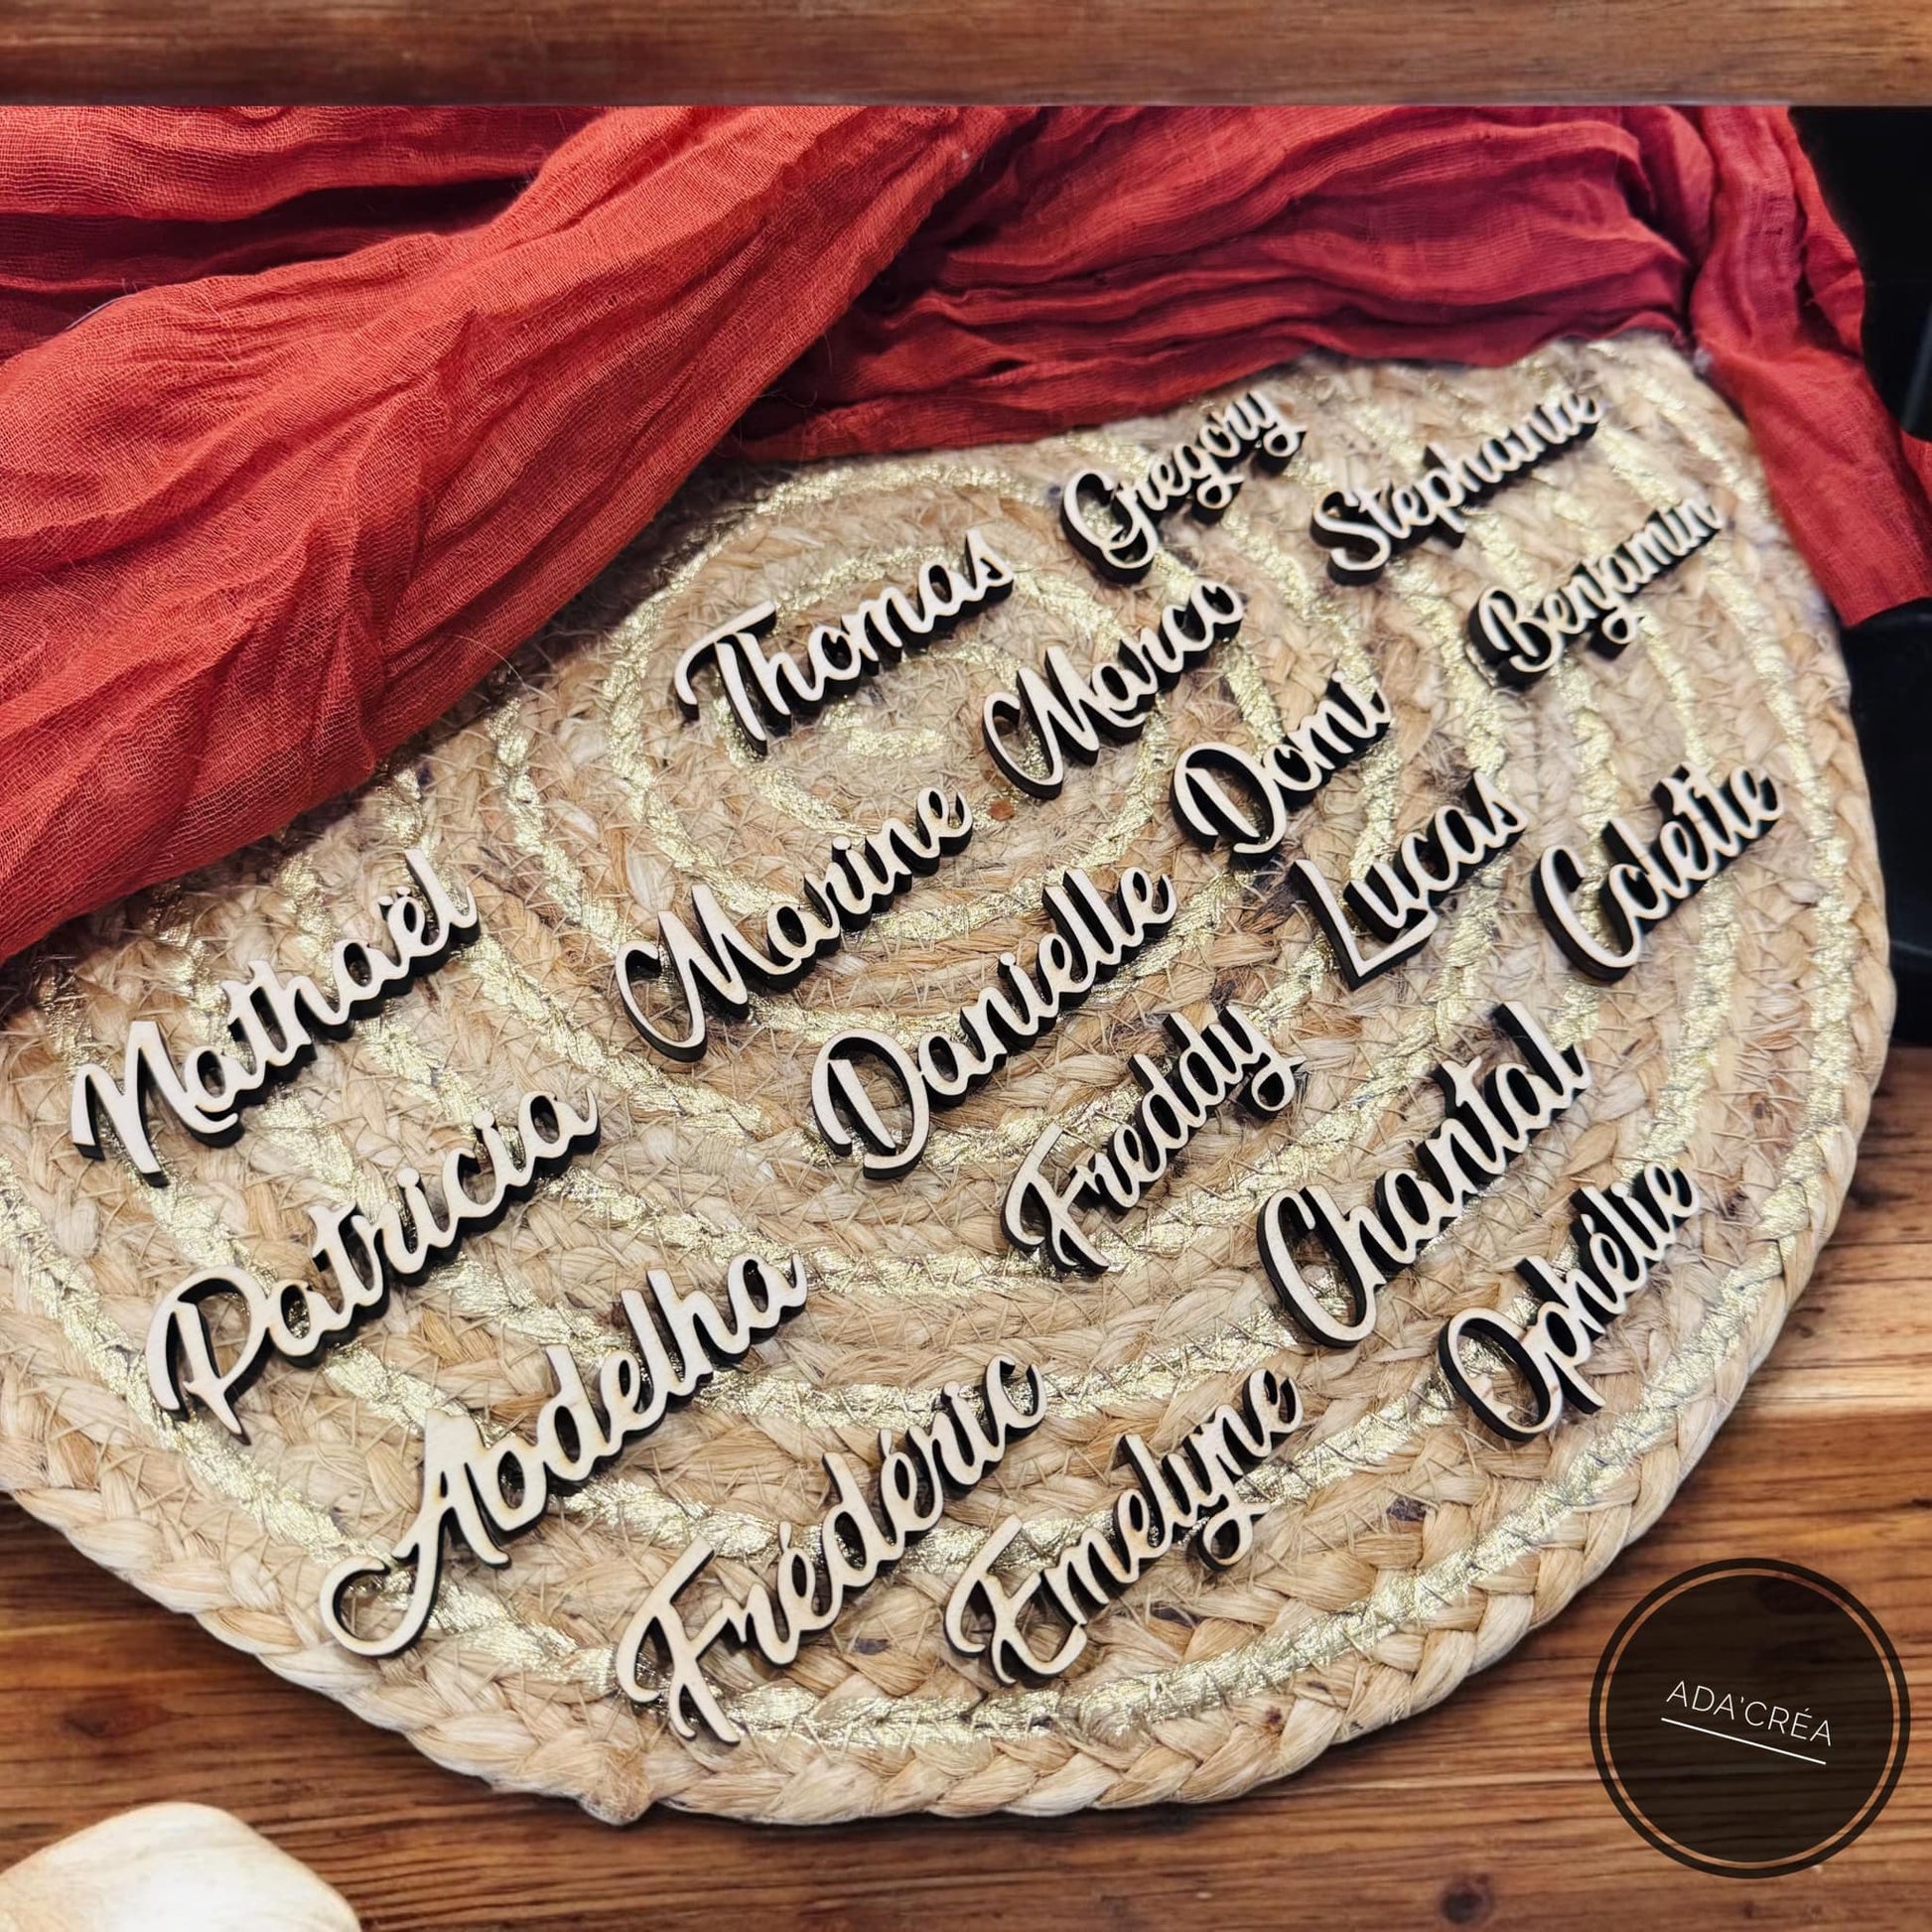 Gregory
Stephanie
Thomas
Marco
Benjamin
Domi
Marine
Lucas
Colette
Nathaël
Danielle
Freddy
Chantal
Patricia
Abdelha
Ophélie
Frédéric
Emelyne
ADA'CRÉA